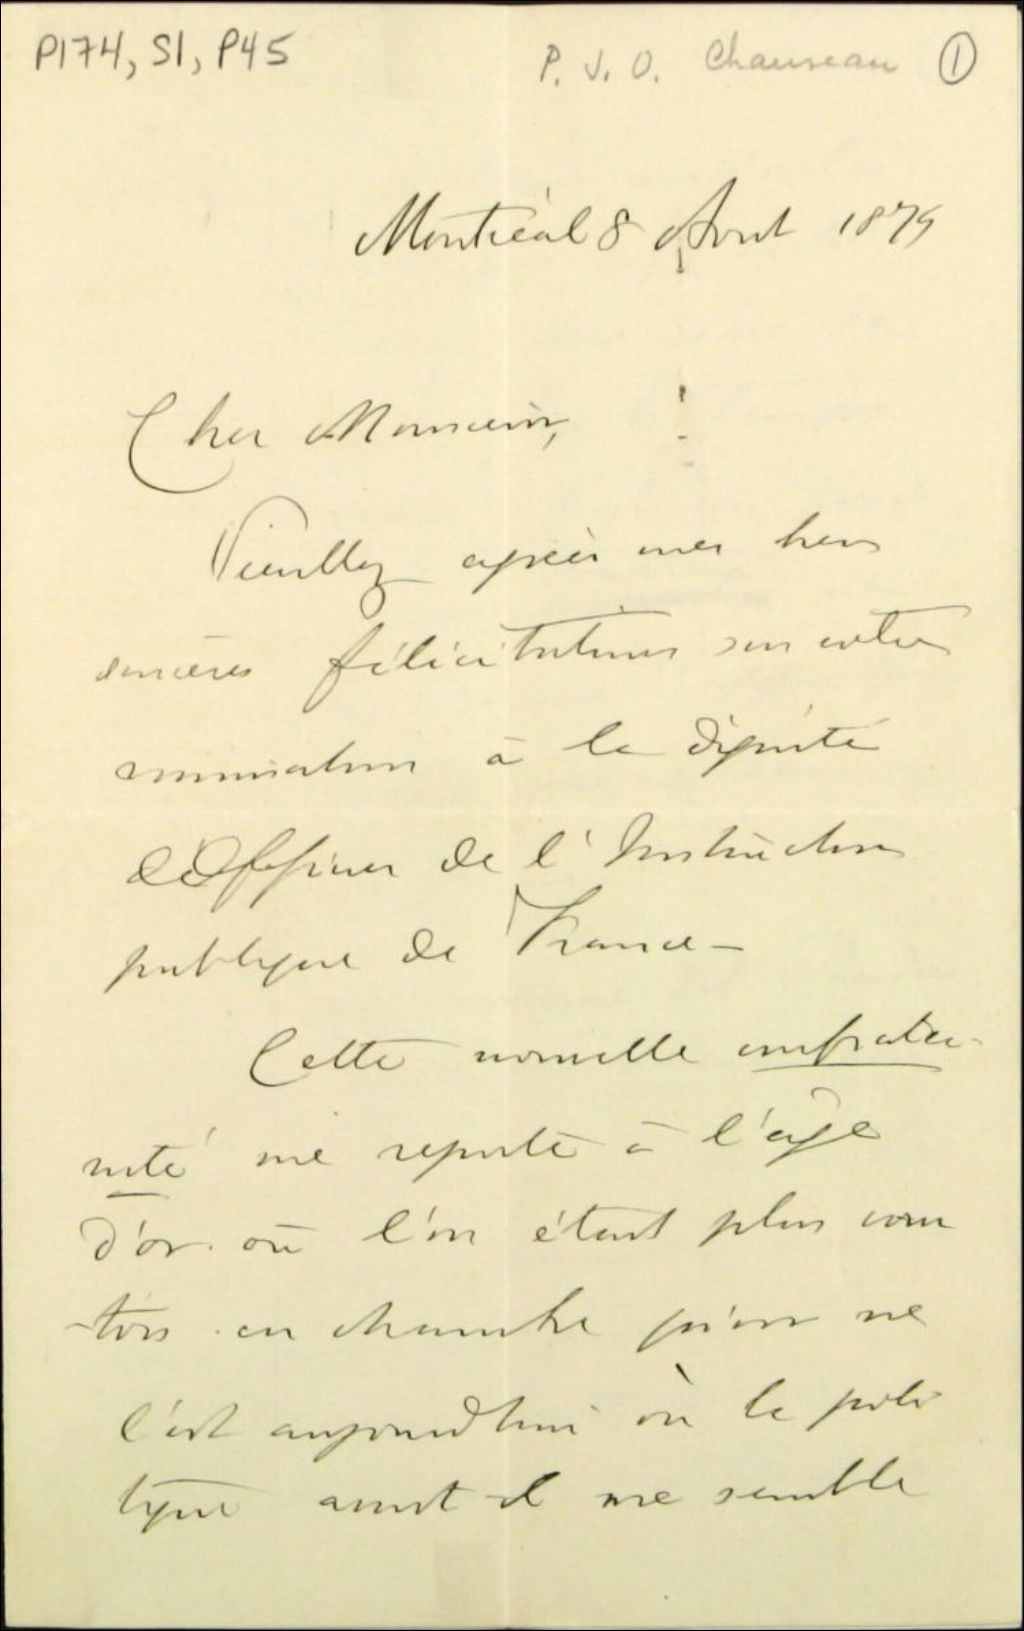 P174, S1, P45
P. J. O. Chauveau 1
Montréal 8 Aout 1879
Cher Monsieur,
Veuillez agréer mes bien
sincères félicitations sur votre
nomination à la dignité
d'Officier de l'Instruction
publique de France —
Cette nouvelle confrater-
nité me reporte à l'age
d'or où l'on étant plus cour
tois en chambre qu'on ne
l'est aujourdhui où la poli
tique avait il me semble